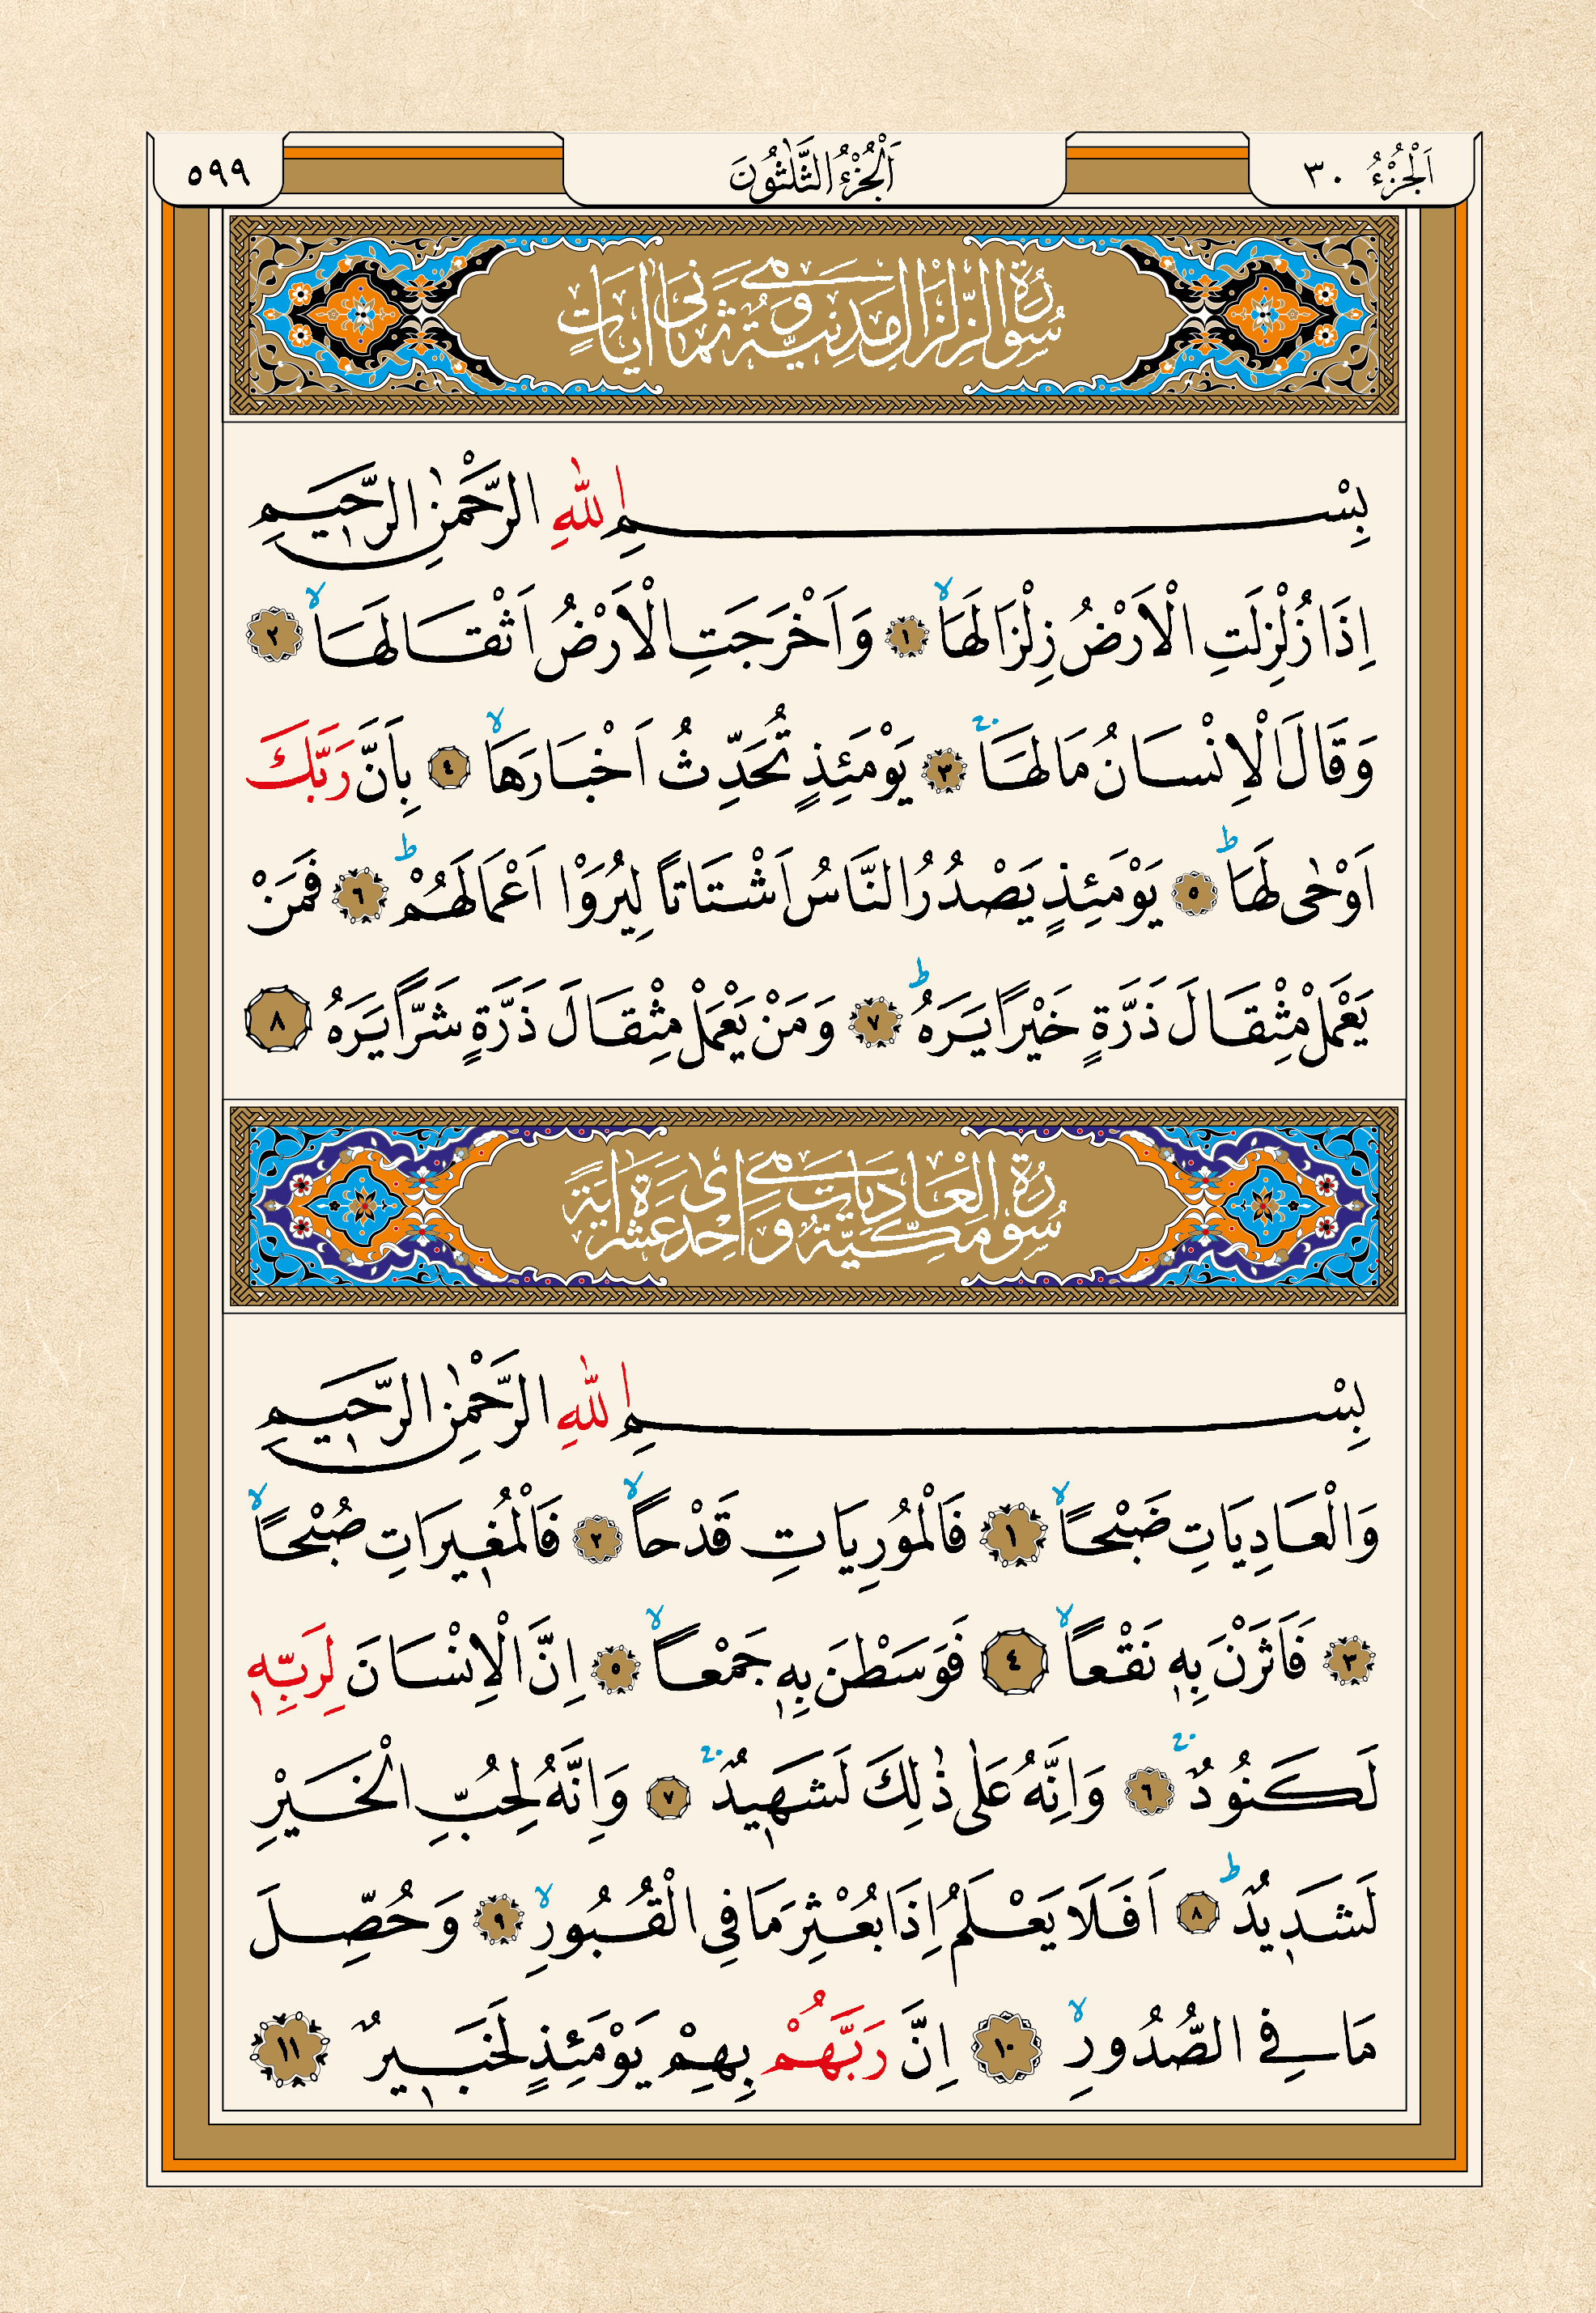 اَلْجُزْءُ ٣٠
اَلْجُزْءُ الثَّلٰثُونَ
٥٩٩
سُورَةُ الزِّلْزَالِ مَدَنِيَّةٌ وَهِيَ ثَمَانِي اٰيَاتٍ
بِسْمِ اللّٰهِ الرَّحْمٰنِ الرَّح۪يمِ
اِذَا زُلْزِلَتِ الْاَرْضُ زِلْزَالَهَاۙ ١ وَاَخْرَجَتِ الْاَرْضُ اَثْقَالَهَاۙ ٢
وَقَالَ الْاِنْسَانُ مَالَهَاۚ ٣ يَوْمَئِذٍ تُحَدِّثُ اَخْبَارَهَاۙ ٤ بِاَنَّ رَبَّكَ
اَوْحٰى لَهَاۜ ٥ يَوْمَئِذٍ يَصْدُرُ النَّاسُ اَشْتَاتاً لِيُرَوْا اَعْمَالَهُمْۜ ٦ فَمَنْ
يَعْمَلْ مِثْقَالَ ذَرَّةٍ خَيْراً يَرَهُۜ ٧ وَمَنْ يَعْمَلْ مِثْقَالَ ذَرَّةٍ شَرّاً يَرَهُ ٨
سُورَةُ الْعَادِيَاتِ مَكِّيَّةٌ وَهِيَ اِحْدٰى عَشْرَةَ اٰيَةً
بِسْمِ اللّٰهِ الرَّحْمٰنِ الرَّح۪يمِ
وَالْعَادِيَاتِ ضَبْحاًۙ ١ فَالْمُورِيَاتِ قَدْحاًۙ ٢ فَالْمُغ۪يرَاتِ صُبْحاًۙ
٣ فَاَثَرْنَ بِه۪ نَقْعاًۙ ٤ فَوَسَطْنَ بِه۪ جَمْعاًۙ ٥ اِنَّ الْاِنْسَانَ لِرَبِّه۪
لَكَنُودٌۚ ٦ وَاِنَّهُ عَلٰى ذٰلِكَ لَشَه۪يدٌۚ ٧ وَاِنَّهُ لِحُبِّ الْخَيْرِ
لَشَد۪يدٌۜ ٨ اَفَلَا يَعْلَمُ اِذَا بُعْثِرَ مَا فِي الْقُبُورِۙ ٩ وَحُصِّلَ
مَا فِي الصُّدُورِۙ ١٠ اِنَّ رَبَّهُمْ بِهِمْ يَوْمَئِذٍ لَخَب۪يرٌ ١١